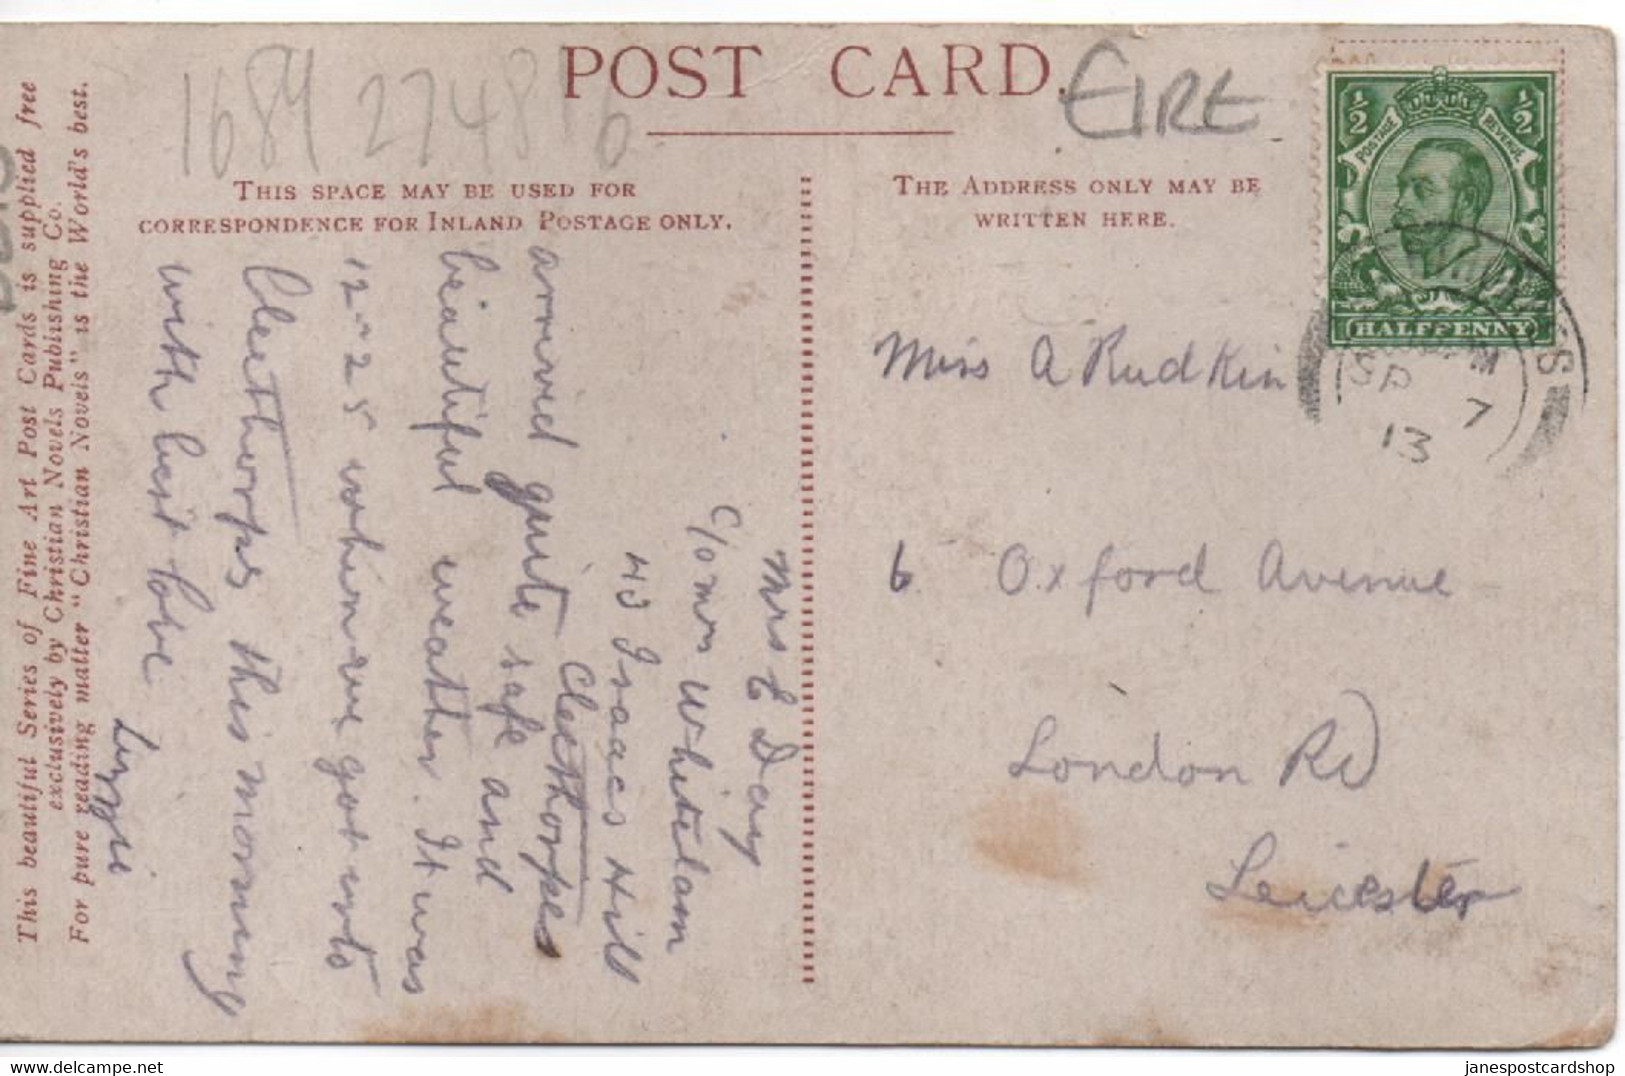 1684 274816
POST CARD.
EIRE
THIS SPACE MAY BE USED FOR
CORRESPONDENCE FOR INLAND POSTAGE ONLY.
THE ADDRESS ONLY MAY BE
WRITTEN HERE.
This beautiful Series of Fine Art Post Cards is supplied free
exclusively by Christian Novels Publishing Co.
For pure reading matter "Christian Novels" is the World's best.
Mrs E Day
C/o Mrs Whitelam
43 Isaacs Hill
Cleethorpes
arrived quite safe and
beautiful weather. It was
12-25 when we got into
Cleethorps this morning
with best love
Lizzie
½ ½
POSTAGE REVENUE
HALFPENNY
SP 7
13
Miss A Rudkin
6 Oxford Avenue
London Rd
Leicester
janespostcardshop